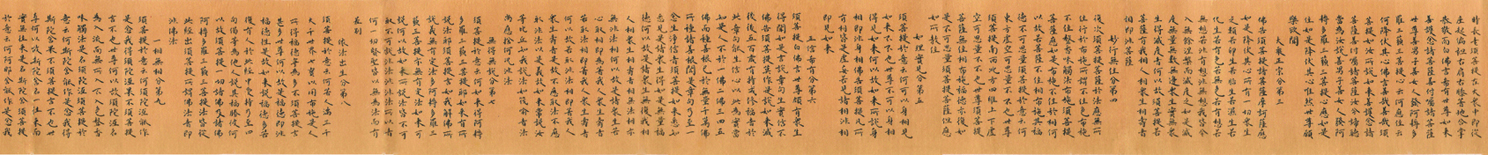 時長老須菩提在大眾中即從
座起偏袒右肩右膝著地合掌
恭敬而白佛言希有世尊如來
善護念諸菩薩善付囑諸菩薩
世尊善男子善女人發阿耨多
羅三藐三菩提心應云何住云
何降伏其心佛言善哉善哉須
菩提如汝所說如來善護念諸
菩薩善付囑諸菩薩汝今諦聽
當為汝說善男子善女人發阿
耨多羅三藐三菩提心應如是
住如是降伏其心唯然世尊願
樂欲聞
大乘正宗分第三
佛告須菩提諸菩薩摩訶薩應
如是降伏其心所有一切眾生
之類若卵生若胎生若濕生若
化生若有色若無色若有想若
無想若非有想非無想我皆令
入無餘涅槃而滅度之如是滅
度無量無數無邊眾生實無眾
生得滅度者何以故須菩提若
菩薩有我相人相眾生相壽者
相即非菩薩
妙行無住分第四
復次須菩提菩薩於法應無所
住行於布施所謂不住色布施
不住聲香味觸法布施須菩提
菩薩應如是布施不住於相何
以故若菩薩不住相布施其福
德不可思量須菩提於意云何
東方虛空可思量不不也世尊
須菩提南西北方四維上下虛
空可思量不不也世尊須菩提
菩薩無住相布施福德亦復如
是不可思量須菩提菩薩但應
如所教住
如理實見分第五
須菩提於意云何可以身相見
如來不不也世尊不可以身相
得見如來何以故如來所說身
相即非身相佛告須菩提凡所
有相皆是虛妄若見諸相非相
即見如來
正信希有分第六
須菩提白佛言世尊頗有眾生
得聞如是言說章句生實信不
佛告須菩提莫作是說如來滅
後後五百歲有持戒修福者於
此章句能生信心以此為實當
知是人不於一佛二佛三四五
佛而種善根已於無量千萬佛
所種諸善根聞是章句乃至一
念生淨信者須菩提如來悉知
悉見是諸眾生得如是無量福
德何以故是諸眾生無復我相
人相眾生相壽者相無法相亦
無非法相何以故是諸眾生若
心取相即為著我人眾生壽者
若取法相即著我人眾生壽者
何以故若取非法相即著我人
眾生壽者是故不應取法不應
取非法以是義故如來常說汝
等比丘知我說法如筏喻者法
尚應捨何況非法
無得無說分第七
須菩提於意云何如來得阿耨
多羅三藐三菩提耶如來有所
說法耶須菩提言如我解佛所
說義無有定法名阿耨多羅三
藐三菩提亦無有定法如來可
說何以故如來所說法皆不可
取不可說非法非非法所以者
何一切賢聖皆以無為法而有
差別
依法出生分第八
須菩提於意云何若人滿三千
大千世界七寶以用布施是人
所得福德寧為多不須菩提言
甚多世尊何以故是福德即非
福德性是故如來說福德多若
復有人於此經中受持乃至四
句偈等為他人說其福勝彼何
以故須菩提一切諸佛及諸佛
阿耨多羅三藐三菩提法皆從
此經出須菩提所謂佛法者即
非佛法
一相無相分第九
須菩提於意云何須陀洹能作
是念我得須陀洹果不須菩提
言不也世尊何以故須陀洹名
為入流而無所入不入色聲香
味觸法是名須陀洹須菩提於
意云何斯陀含能作是念我得
斯陀含果不須菩提言不也世
尊何以故斯陀含名一往來而
實無往來是名斯陀含須菩提
於意云何阿那含能作是念我